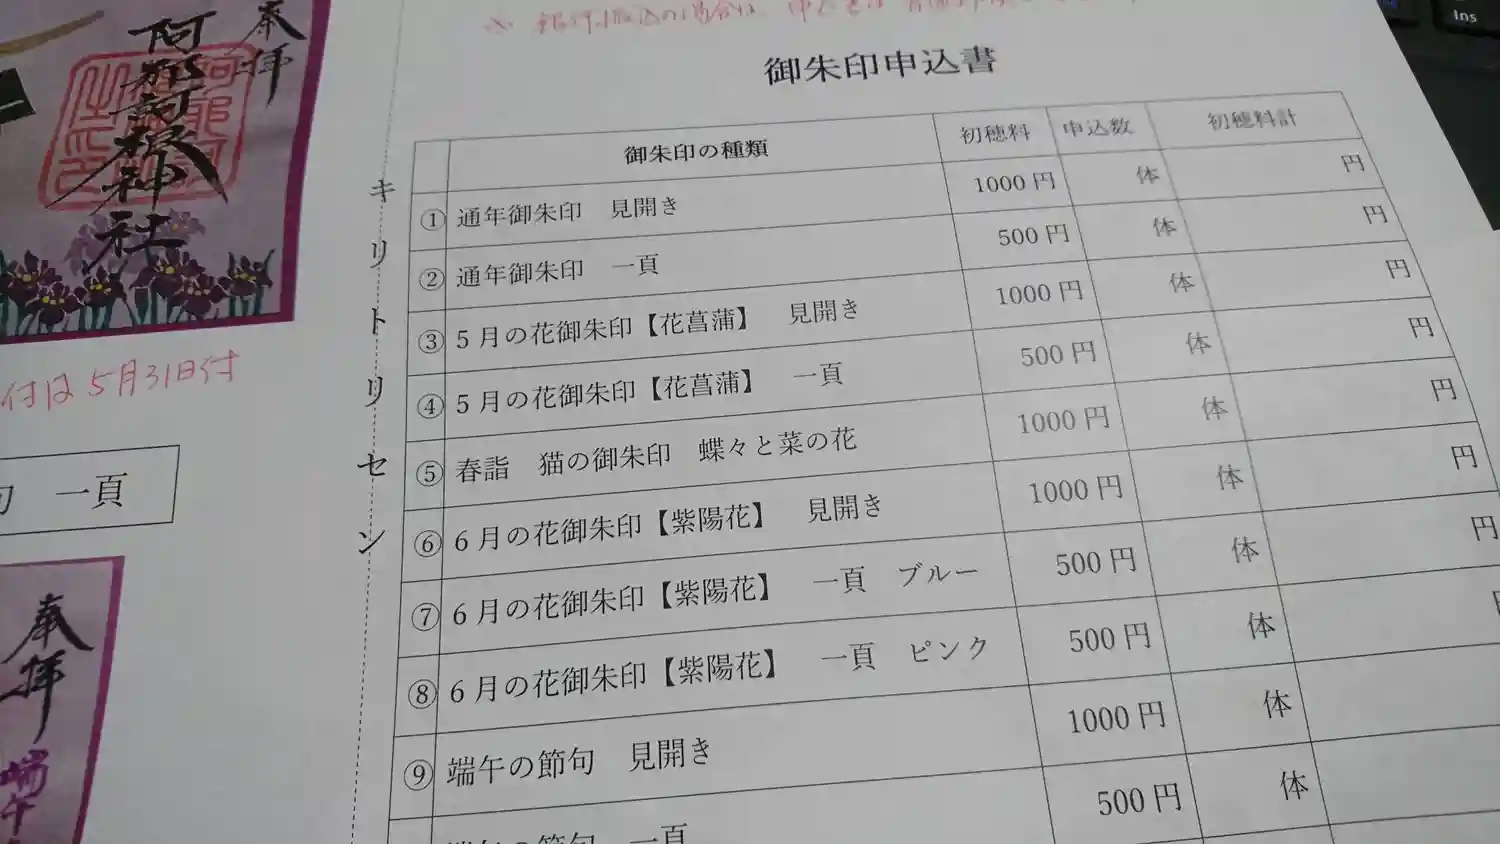 奉拝
阿那訶根神社
付は5月31日付
一頁
奉拝
端午
キリトリセン
御朱印申込書
御朱印の種類 初穂料 申込数 初穂料計
① 通年御朱印 見開き 1000円 体 円
② 通年御朱印 一頁 500円 体 円
③ 5月の花御朱印【花菖蒲】 見開き 1000円 体 円
④ 5月の花御朱印【花菖蒲】 一頁 500円 体 円
⑤ 春詣 猫の御朱印 蝶々と菜の花 1000円 体 円
⑥ 6月の花御朱印【紫陽花】 見開き 1000円 体 円
⑦ 6月の花御朱印【紫陽花】 一頁 ブルー 500円 体 円
⑧ 6月の花御朱印【紫陽花】 一頁 ピンク 500円 体
⑨ 端午の節句 見開き 1000円 体
端午の節句 一頁 500円 体
Ins